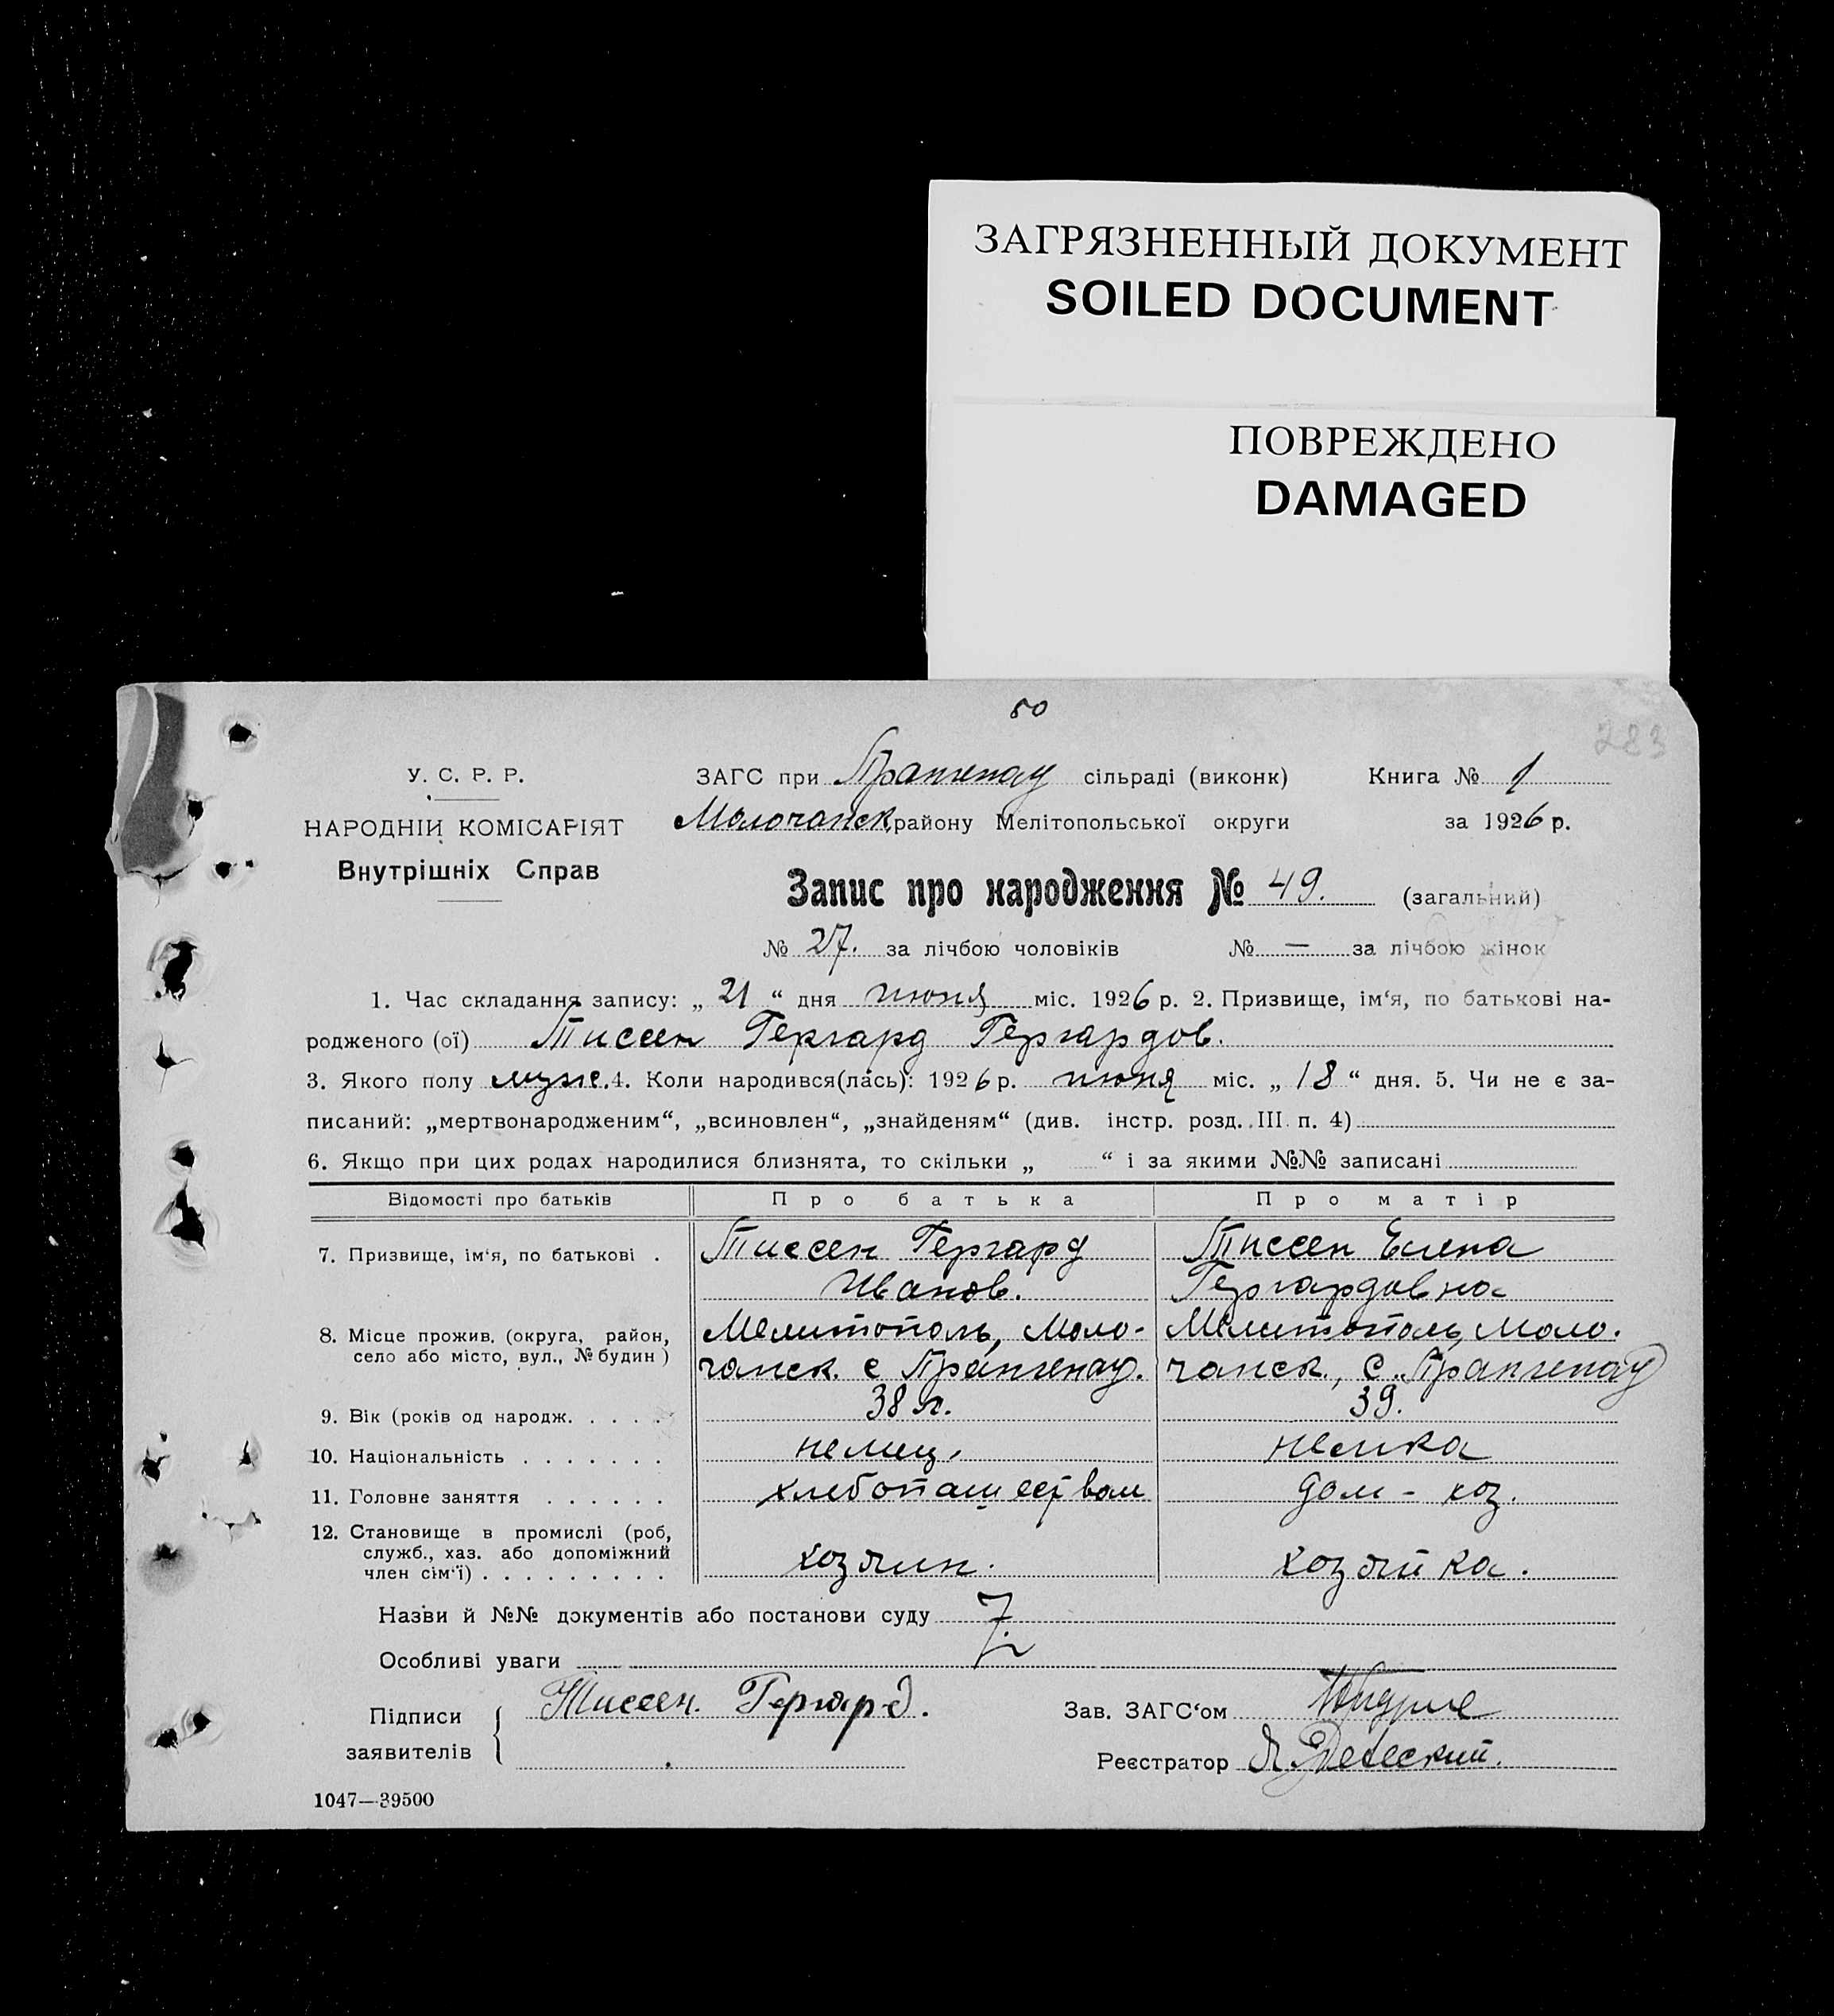 ЗАГРЯЗНЕННЫЙ ДОКУМЕНТ
SOILED DOCUMENT
ПОВРЕЖДЕНО
DAMAGED
50
283
У. С. Р. Р.
НАРОДНІЙ КОМІСАРІЯТ
Внутрішніх Справ
ЗАГС при Прангенау сільраді (виконк) Книга № 1
Молочанск району Мелітопольської округи за 1926 р.
Запис про народження № 49. (загальний)
№ 27. за лічбою чоловіків № — за лічбою жінок
1. Час складання запису: „ 21 “ дня июня міс. 1926 р. 2. Призвище, ім‘я, по батькові на-
родженого (ої) Тиссен Гергард Гергардов.
3. Якого полу муж. 4. Коли народився(лась): 1926 р. июня міс. „ 18 “ дня. 5. Чи не є за-
писаний: „мертвонародженим“, „всиновлен“, „знайденям“ (див. інстр. розд. III п. 4)
6. Якщо при цих родах народилися близнята, то скільки „ “ і за якими №№ записані
Відомості про батьків Про батька Про матір
7. Призвище, ім‘я, по батькові . Тиссен Гергард Тиссен Елена
Иванов. Гергардовна
8. Місце прожив. (округа, район, Мелитополь, Моло- Мелитополь, Моло.
село або місто, вул., № будин) чанск. с Прангенау. чанск., с. Прангенау
9. Вік (років од народж. . . . . 38 л. 39.
10. Національність . . . . . . . немец, немка
11. Головне заняття . . . . . . хлебопашеством дом - хоз.
12. Становище в промислі (роб,
служб., хаз. або допоміжний
член сім‘ї) . . . . . . . . . хозяин. хозяйка.
Назви й №№ документів або постанови суду
Особливі уваги
Підписи Тиссен. Гергард. Зав. ЗАГС‘ом
заявителів Реєстратор
1047—39500